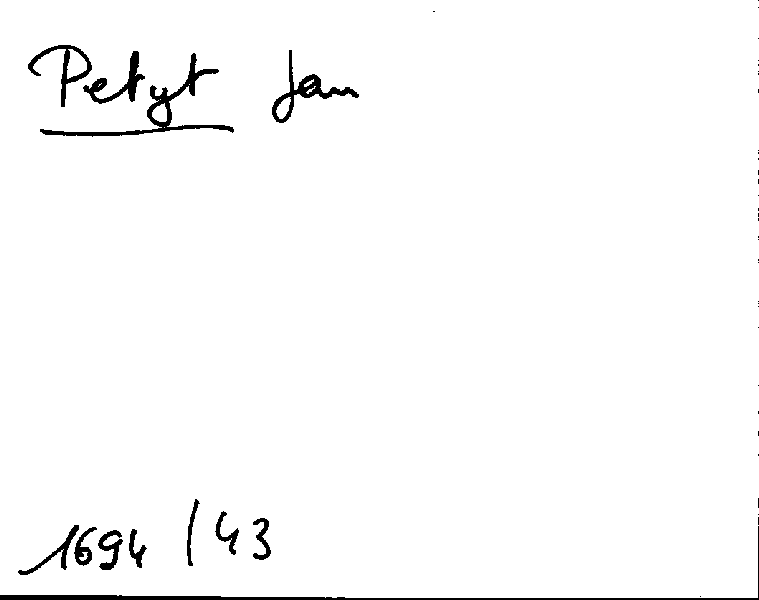 Petyt Jan
1694 / 43